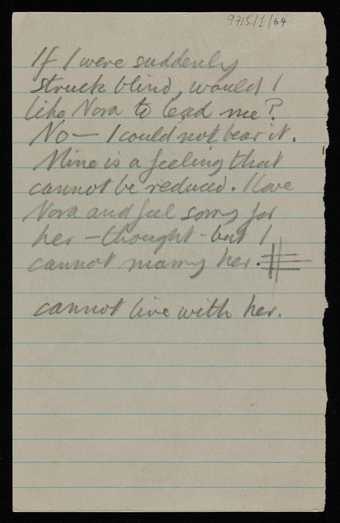 9715/1/64
If I were suddenly
struck blind, would I
like Nora to lead me?
No — I could not bear it.
Mine is a feeling that
cannot be reduced. I love
Nora and feel sorry for
her — thought - but I
cannot marry her.
cannot live with her.